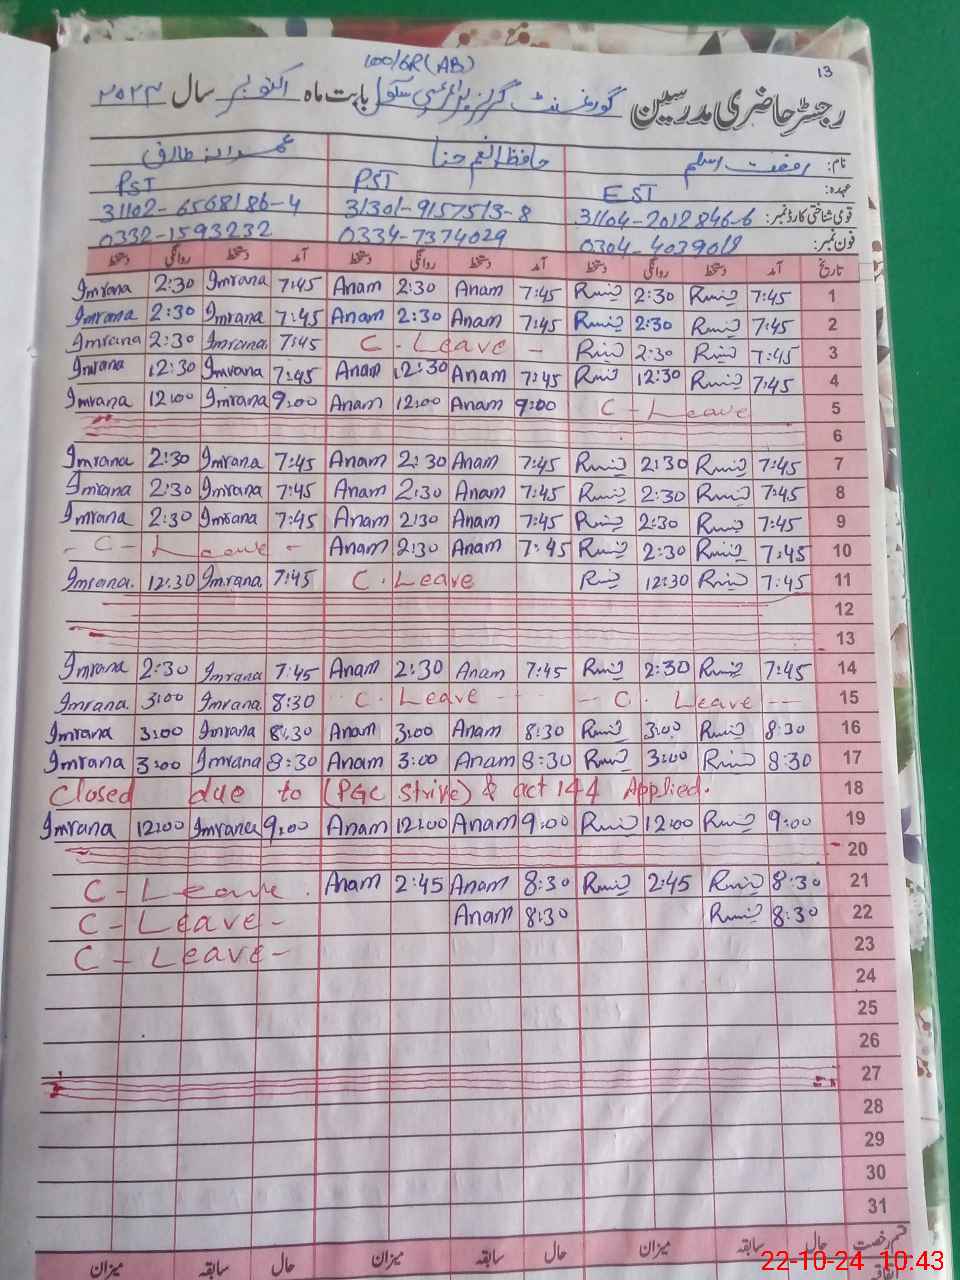 100/6R(AB)
13
رجسٹر حاضری مدرسین گورنمنٹ گرلز پرائمری سکول بابت ماہ اکتوبر سال ۲۰۲۴
نام: رفعت اسلم حافظ انعم حنا عمرانہ طارق
عہدہ: EST PST PST
قومی شناختی کارڈ نمبر: 31104-2012846-6 31301-9157513-8 31102-6568186-4
فون نمبر: 0304-4039018 0334-7374029 0332-1593232
تاریخ آمد دستخط روانگی دستخط آمد دستخط روانگی دستخط آمد دستخط روانگی دستخط
Imrana 2:30 Imrana 7:45 Anam 2:30 Anam 7:45 2:30 7:45 1
Imrana 2:30 Imrana 7:45 Anam 2:30 Anam 7:45 2:30 7:45 2
Imrana 2:30 Imrana. 7:45 C - Leave - 2:30 7:45 3
Imrana 12:30 Imrana 7:45 Anam 12:30 Anam 7:45 12:30 7:45 4
Imrana 12:00 Imrana 9:00 Anam 12:00 Anam 9:00 C - Leave 5
6
Imrana 2:30 Imrana 7:45 Anam 2:30 Anam 7:45 2:30 7:45 7
Imrana 2:30 Imrana 7:45 Anam 2:30 Anam 7:45 2:30 7:45 8
Imrana 2:30 Imrana 7:45 Anam 2:30 Anam 7:45 2:30 7:45 9
- C - Leave - Anam 2:30 Anam 7:45 2:30 7:45 10
Imrana. 12:30 Imrana. 7:45 C. Leave 12:30 7:45 11
12
13
Imrana 2:30 Imrana 7:45 Anam 2:30 Anam 7:45 2:30 7:45 14
Imrana. 3:00 Imrana. 8:30 C. Leave - - - -- C. Leave -- 15
Imrana 3:00 Imrana 8:30 Anam 3:00 Anam 8:30 3:00 8:30 16
Imrana 3:00 Imrana 8:30 Anam 3:00 Anam 8:30 3:00 8:30 17
Closed due to (PGC Strive) & act 144 Applied. 18
Imrana 12:00 Imrana 9:00 Anam 12:00 Anam 9:00 12:00 9:00 19
20
C - Leave. Anam 2:45 Anam 8:30 2:45 8:30 21
C - Leave - Anam 8:30 8:30 22
C - Leave - 23
24
25
26
27
28
29
30
31
قسم رخصت حال سابقہ میزان حال سابقہ میزان حال سابقہ میزان
22-10-24 10:43